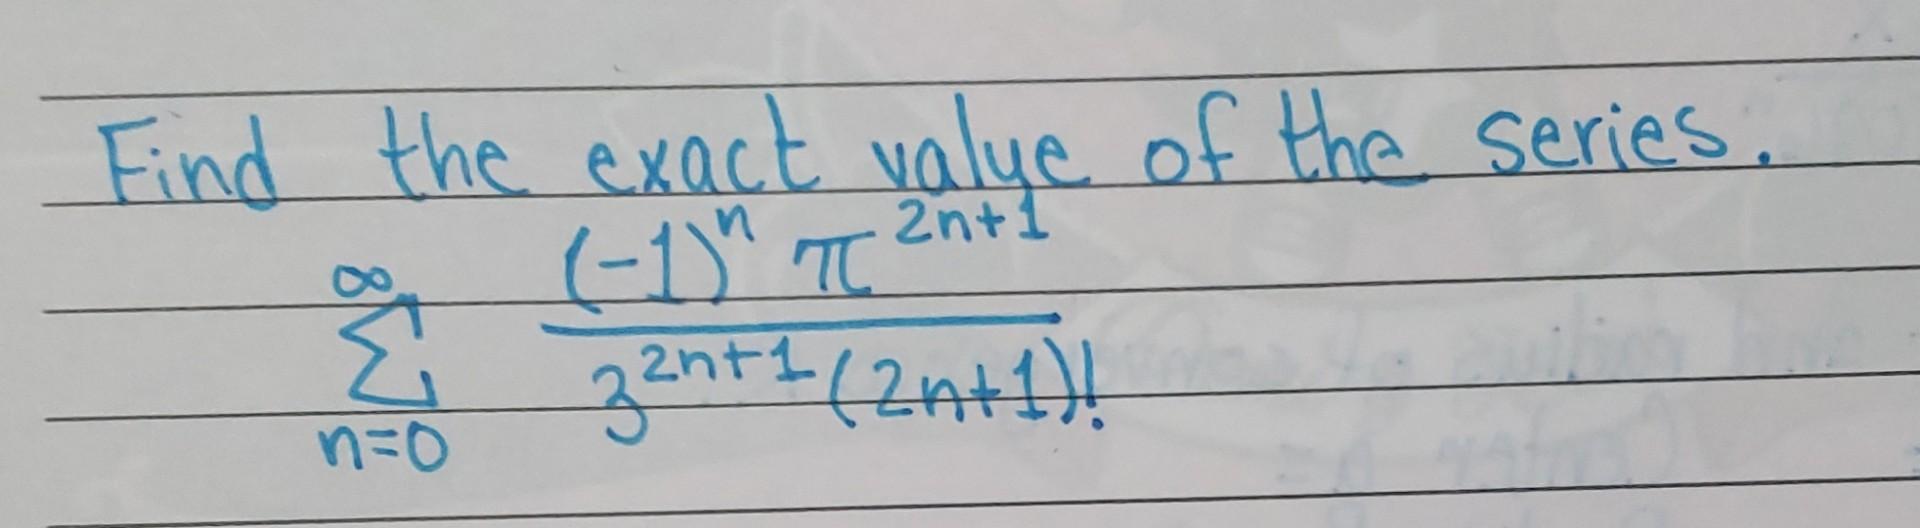 Find the exact value of the series.
∞ (-1)^n π^{2n+1}
Σ ―――――――――
n=0 3^{2n+1}(2n+1)!